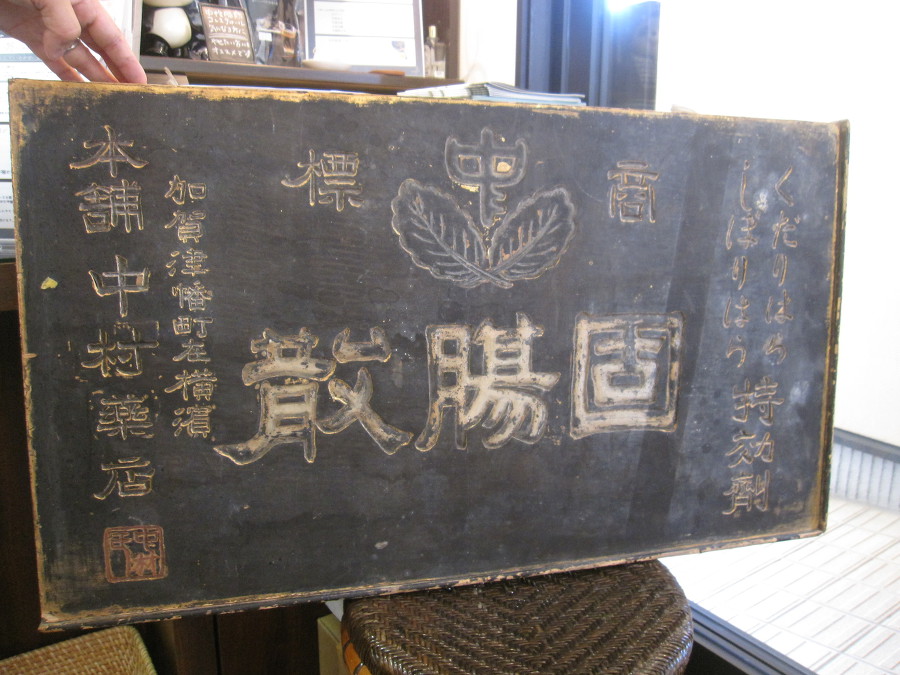 くだりはら
しぼりはら
持効剤
商標
中
固腸散
加賀津幡町在横濱
本舗 中村薬店